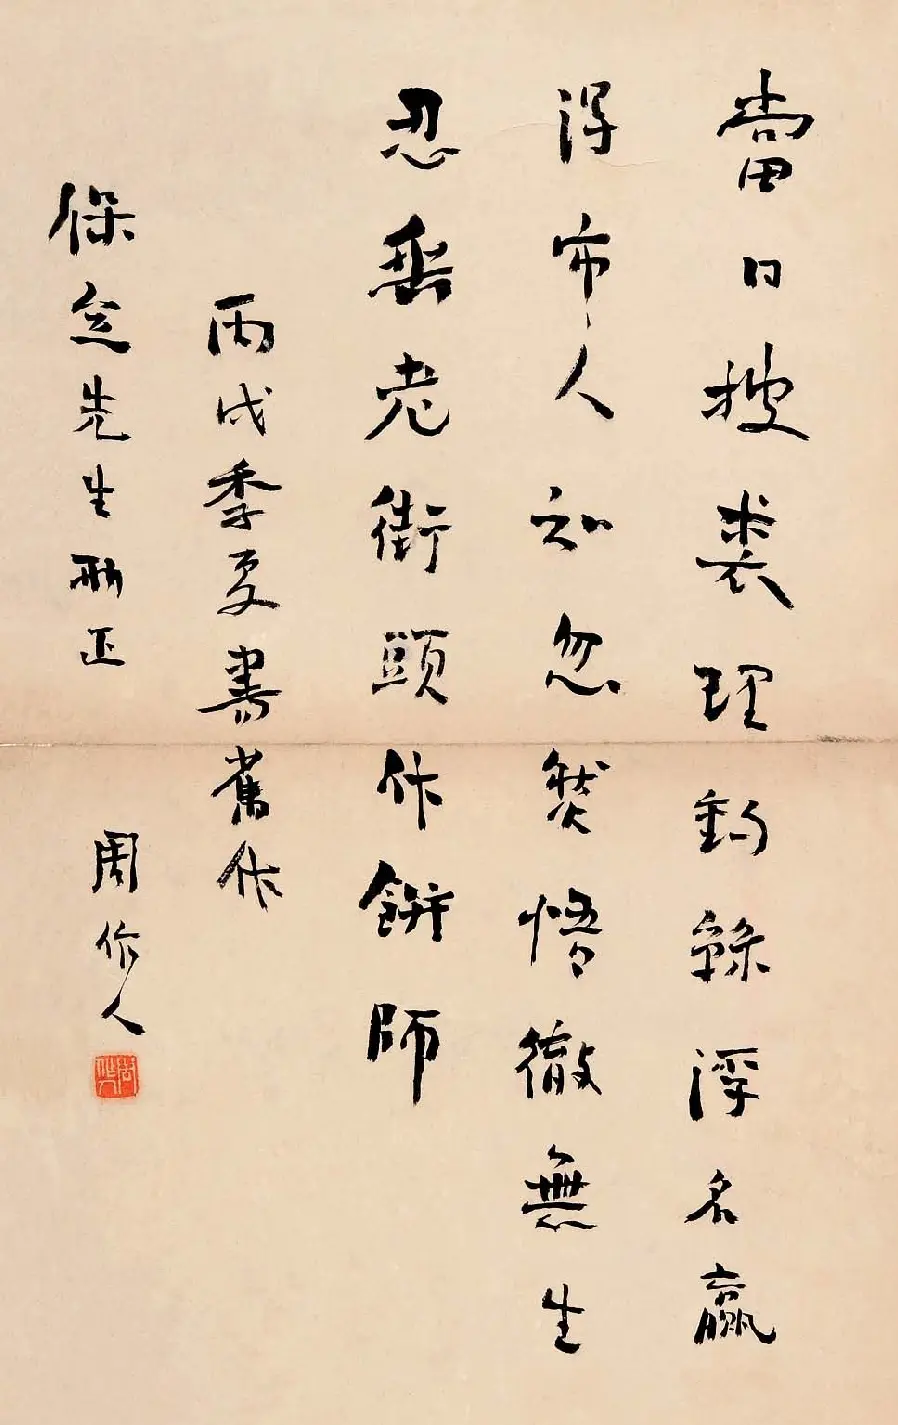 當日披裘理釣絲浮名贏
得市人知忽然悟徹無生
忍垂老街頭作餅師
丙戌季夏書舊作
保兪先生两正 周作人
周作人